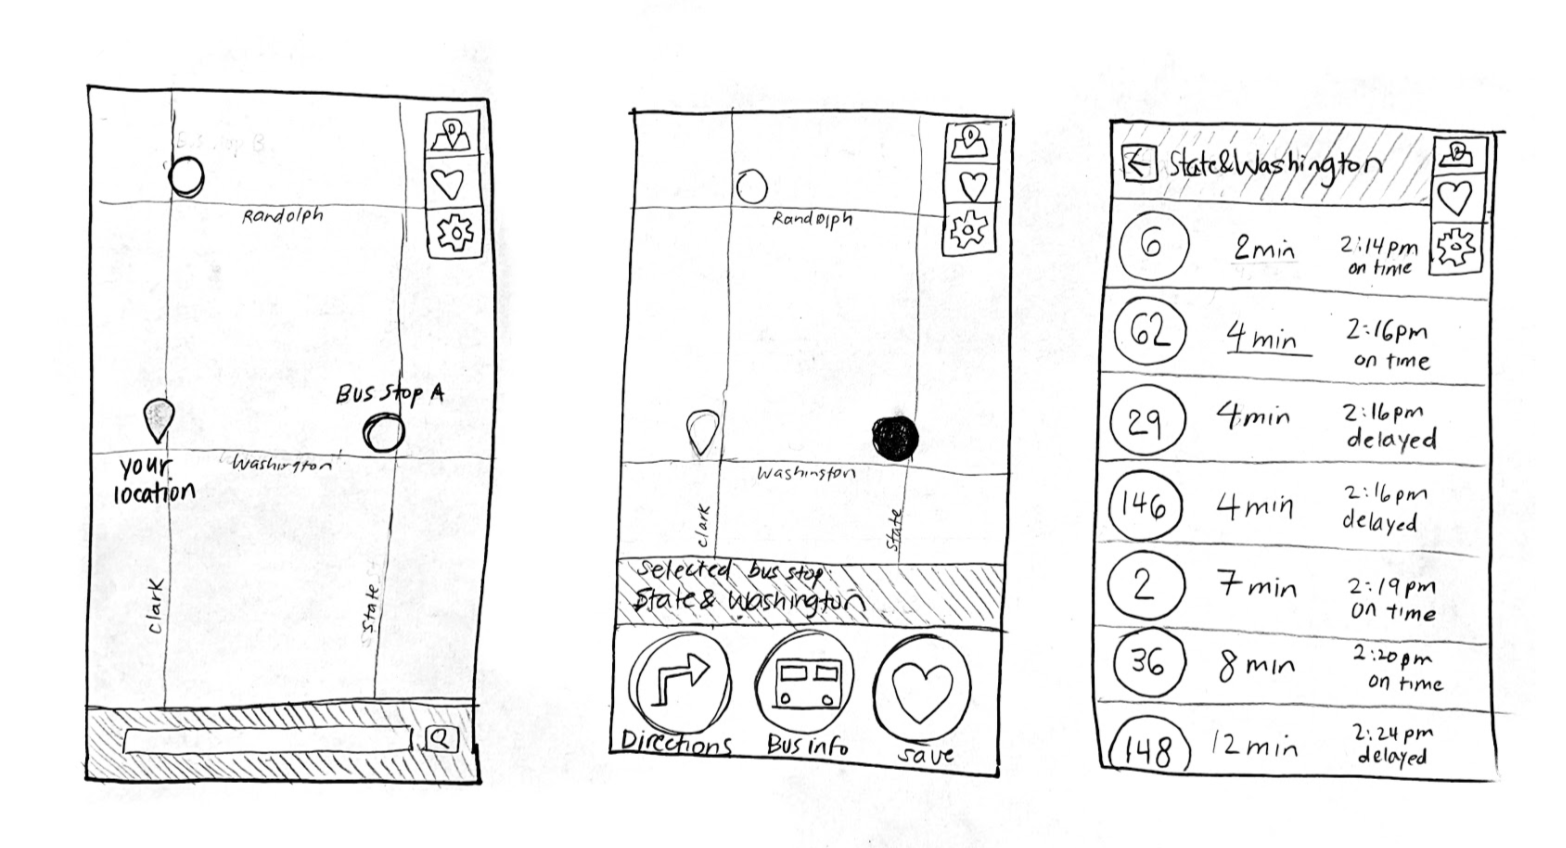 Randolph
Bus Stop A
your
location
Washington
Clark
State
Randolph
Washington
Clark
State
Selected bus stop:
State & Washington
Directions
Bus info
Save
State&Washington
6 2min 2:14pm
on time
62 4 min 2:16pm
on time
29 4min 2:16pm
delayed
146 4 min 2:16pm
delayed
2 7 min 2:19pm
on time
36 8 min 2:20pm
on time
148 12 min 2:24pm
delayed